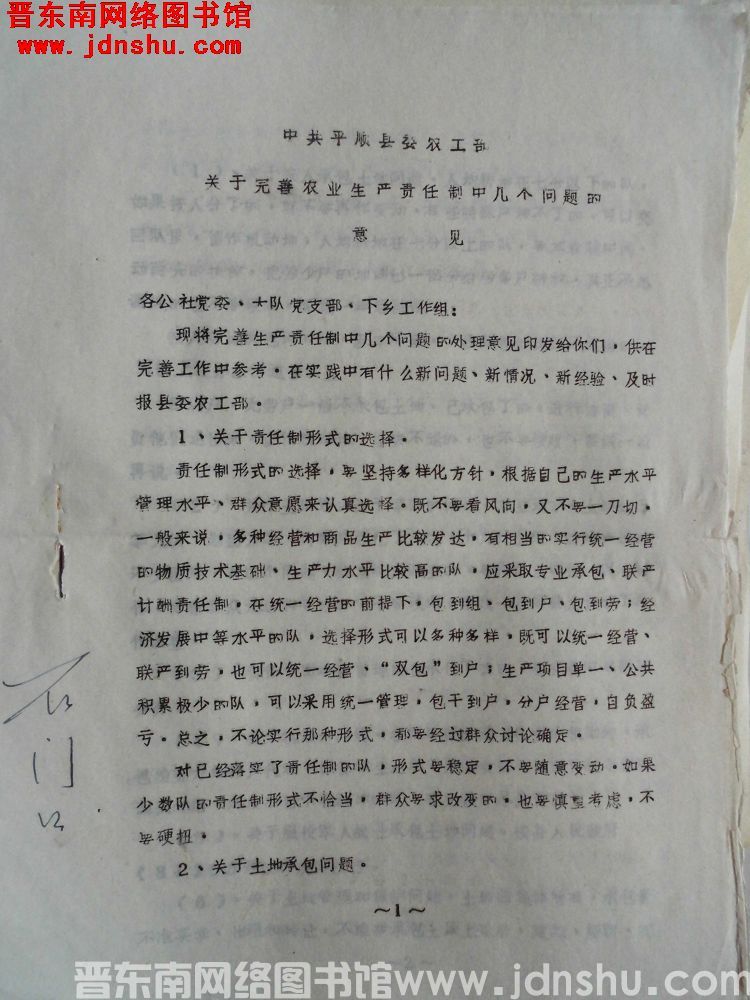 晋东南网络图书馆
www.jdnshu.com
中共平顺县委农工部
关于完善农业生产责任制中几个问题的
意 见
各公社党委、大队党支部、下乡工作组：
现将完善生产责任制中几个问题的处理意见印发给你们，供在
完善工作中参考。在实践中有什么新问题、新情况、新经验、及时
报县委农工部。
1、关于责任制形式的选择。
责任制形式的选择，要坚持多样化方针，根据自己的生产水平
管理水平、群众意愿来认真选择。既不要看风向，又不要一刀切。
一般来说，多种经营和商品生产比较发达，有相当的实行统一经营
的物质技术基础、生产力水平比较高的队，应采取专业承包、联产
计酬责任制，在统一经营的前提下，包到组、包到户、包到劳；经
济发展中等水平的队，选择形式可以多种多样，既可以统一经营、
联产到劳，也可以统一经营、“双包”到户；生产项目单一、公共
积累极少的队，可以采用统一管理，包干到户，分户经营，自负盈
亏。总之，不论实行那种形式，都要经过群众讨论确定。
对已经落实了责任制的队，形式要稳定，不要随意变动。如果
少数队的责任制形式不恰当，群众要求改变的，也要慎重考虑，不
要硬扭。
2、关于土地承包问题。
～1～
石
门
公
晋东南网络图书馆www.jdnshu.com